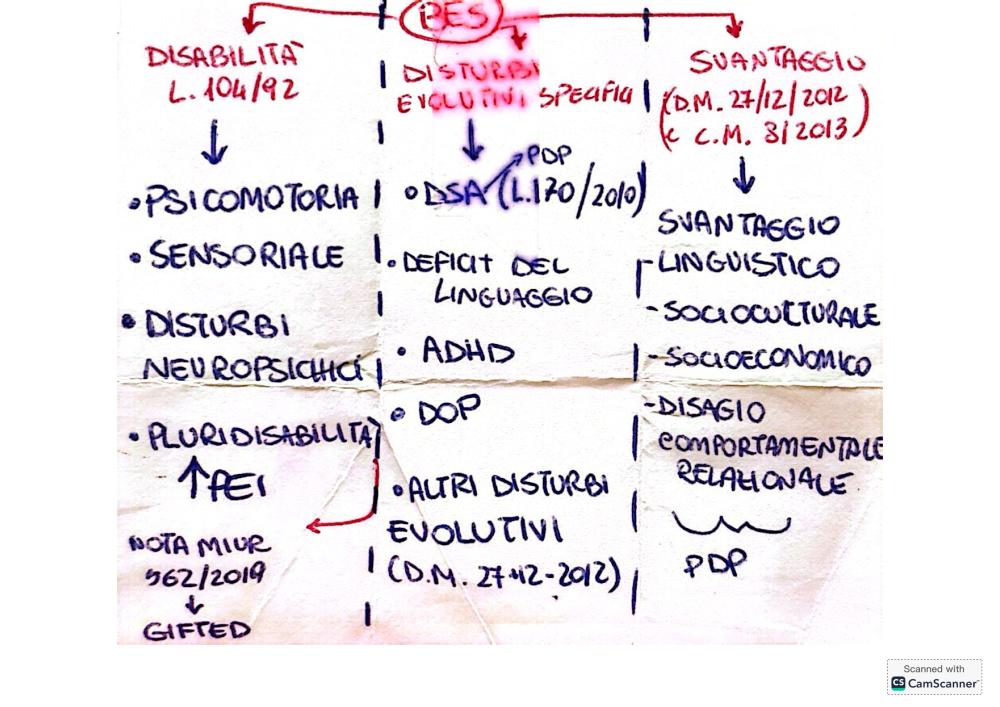 BES
DISABILITÀ
L. 104/92
• PSICOMOTORIA
• SENSORIALE
• DISTURBI
NEUROPSICHICI
• PLURIDISABILITÀ
PEI
NOTA MIUR
562/2019
GIFTED
DISTURBI
EVOLUTIVI SPECIFICI
PDP
• DSA (L.170/2010)
• DEFICIT DEL
LINGUAGGIO
• ADHD
• DOP
• ALTRI DISTURBI
EVOLUTIVI
(D.M. 27-12-2012)
SVANTAGGIO
(D.M. 27/12/2012
e C.M. 8/2013)
SVANTAGGIO
- LINGUISTICO
- SOCIOCULTURALE
- SOCIOECONOMICO
- DISAGIO
COMPORTAMENTALE
RELAZIONALE
PDP
Scanned with
CS CamScanner